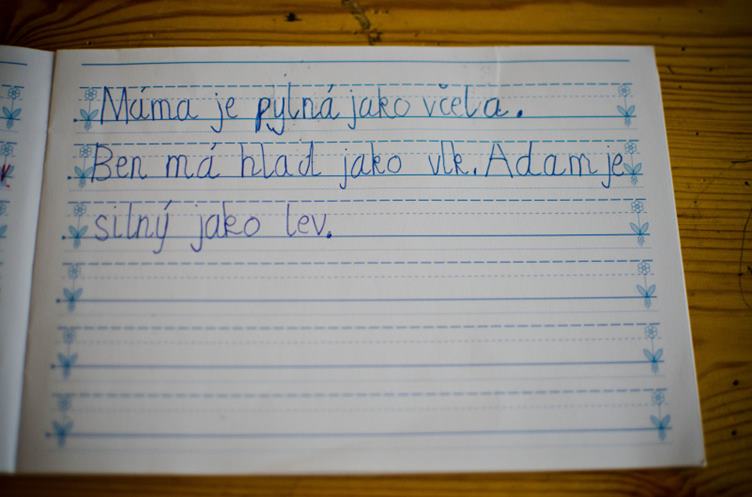 Máma je pylná jako včela.
Ben má hlad jako vlk. Adam je
silný jako lev.